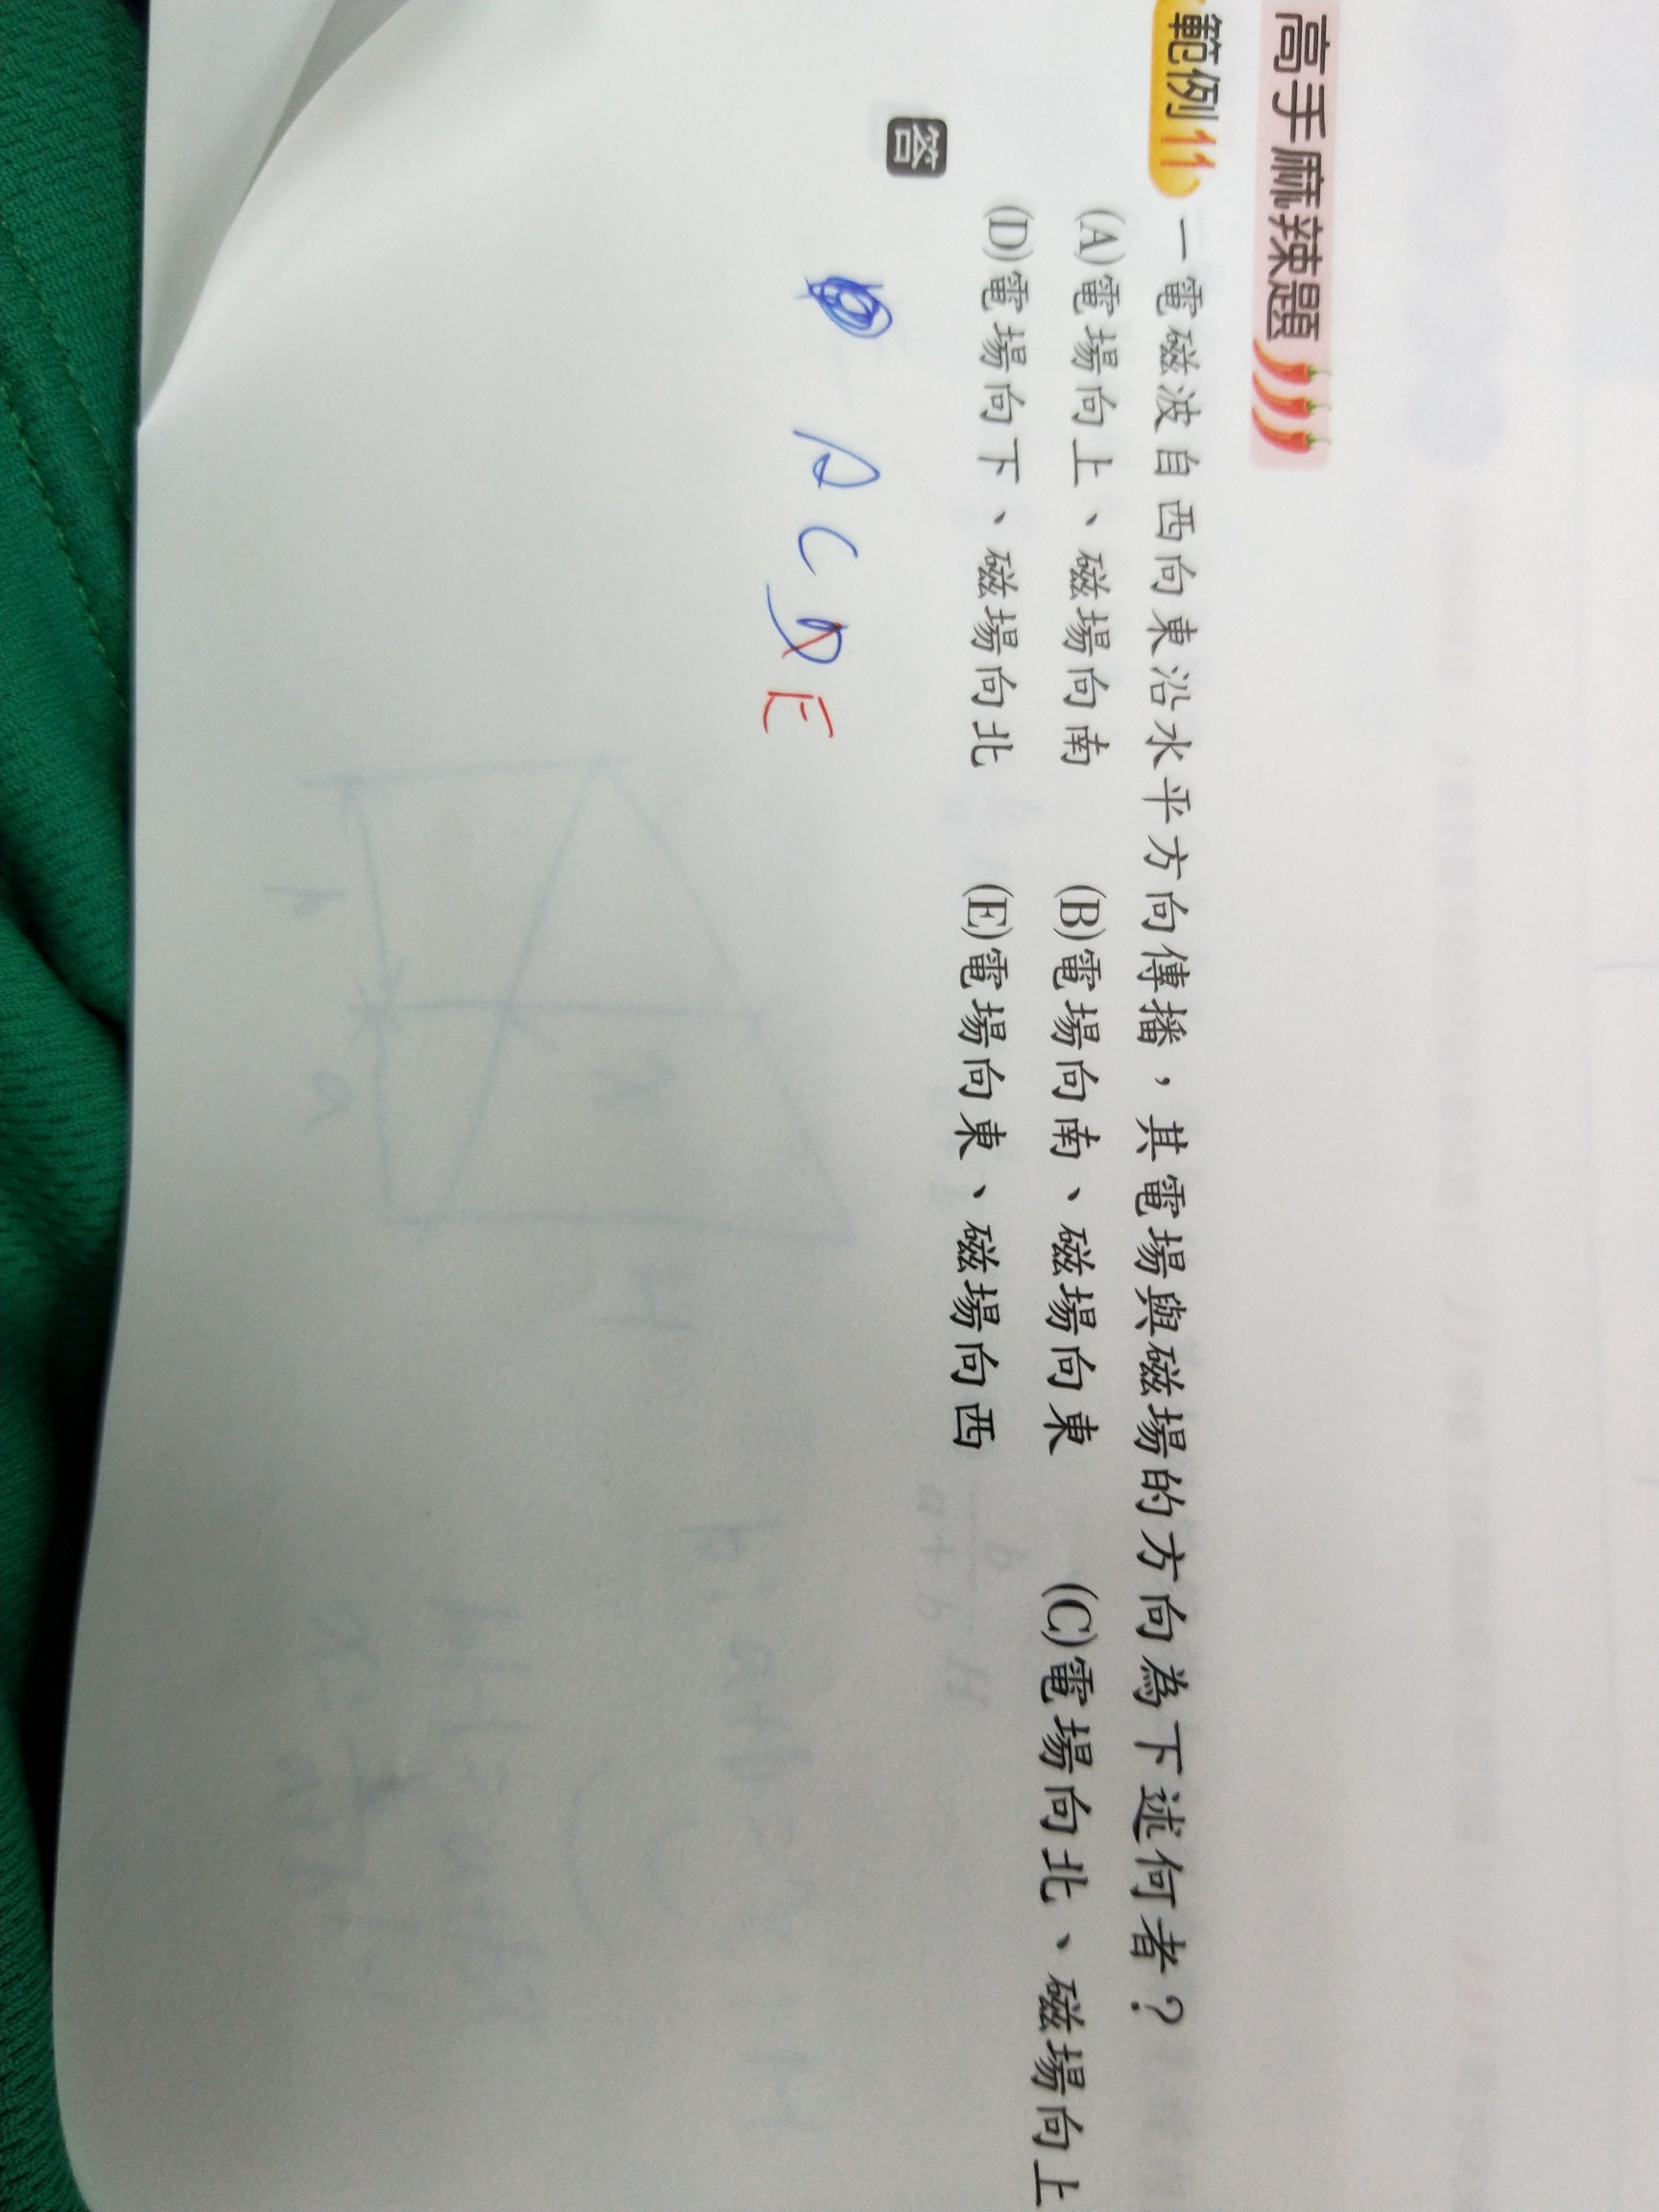 高手麻辣題
範例11 一電磁波自西向東沿水平方向傳播，其電場與磁場的方向為下述何者？
(A)電場向上、磁場向南 (B)電場向南、磁場向東 (C)電場向北、磁場向上
(D)電場向下、磁場向北 (E)電場向東、磁場向西
答
A C D E